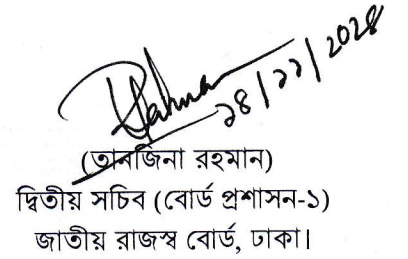 Rahman
১৪/১১/২০২৪
(তানজিনা রহমান)
দ্বিতীয় সচিব (বোর্ড প্রশাসন-১)
জাতীয় রাজস্ব বোর্ড, ঢাকা।